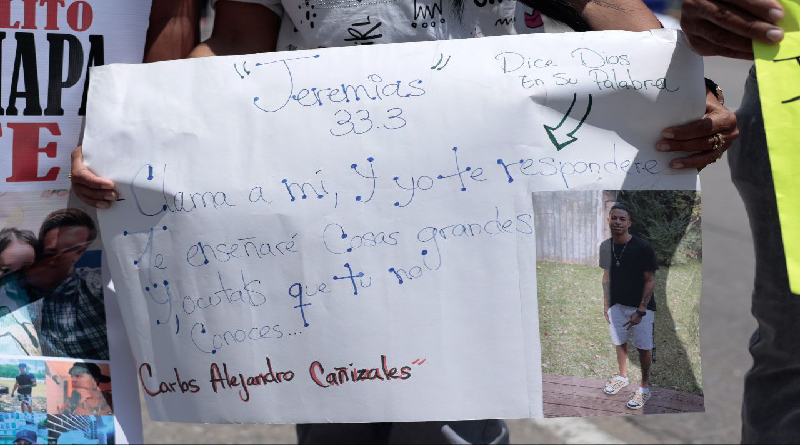 LITO
MAPA
TE
GIRL
"Jeremias"
33.3
Dice Dios
En Su Palabra
Clama a mi, y yo te responderé,
Te enseñaré Cosas grandes
Y, ocultas que tu no
Conoces...
Carlos Alejandro Cañizales"